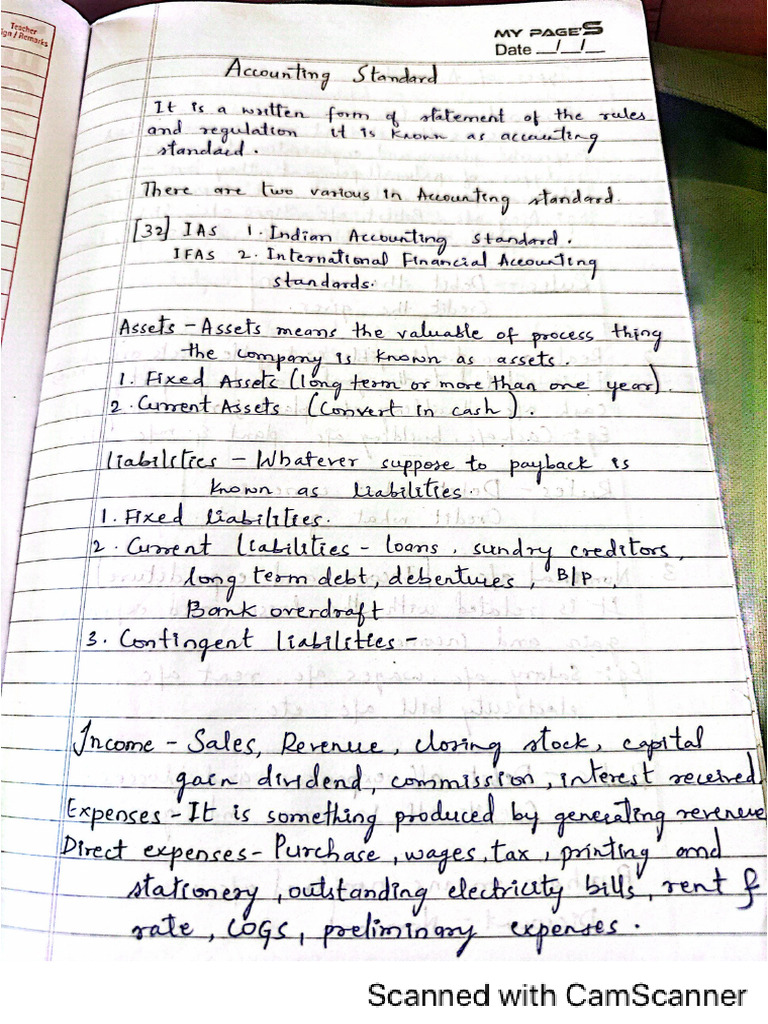 Teacher
ign / Remarks
MY PAGE'S
Date __/__/__
Accounting Standard
It is a written form of statement of the rules
and regulation it is known as accounting
standard.
There are two various in Accounting standard.
[32] IAS 1. Indian Accounting standard.
IFAS 2. International Financial Accounting
standards.
Assets - Assets means the valuable of process thing
the company is known as assets.
1. Fixed Assets (long term or more than one year).
2. Current Assets (Convert in cash).
liabilities - Whatever suppose to payback is
known as liabilities.
1. Fixed liabilities.
2. Current liabilities - loans, sundry creditors,
long term debt, debentures, B/P
Bank overdraft
3. Contingent liabilities -
Income - Sales, Revenue, closing stock, capital
gain dividend, commission, interest received.
Expenses - It is something produced by generating revenue
Direct expenses - Purchase, wages, tax, printing and
stationery, outstanding electricity bills, rent &
rate, COGS, preliminary expenses.
Scanned with CamScanner